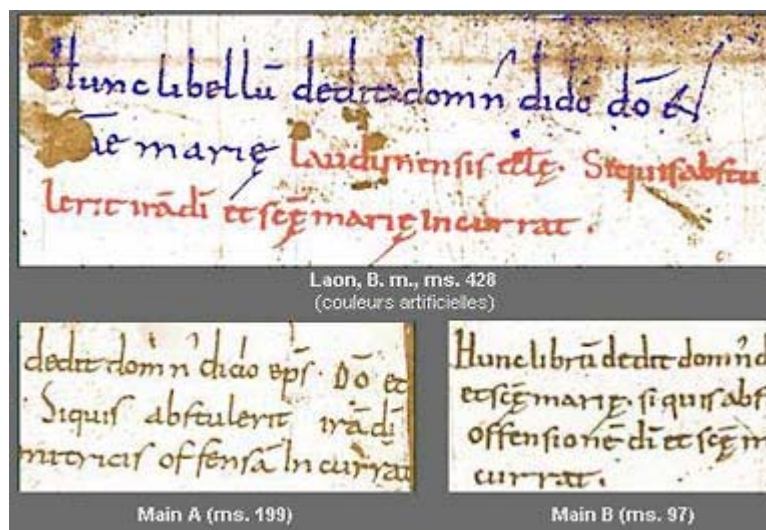 Hunc libellū dedit domn̄ dido dō &
s̄c̄ae marię Laudunensis ecl̄ę. Siquis abstu
lerit irā dī et sc̄ę marię Incurrat.
Laon, B. m., ms. 428
(couleurs artificielles)
dedit domn̄ dido ep̄s. Dō et
Siquis abstulerit irā dī
nitricis offensā Incurrat
Main A (ms. 199)
Hunc librū dedit domn̄ d
et sc̄ę marię. siquis abst
offensionē dī et sc̄ę m
currat.
Main B (ms. 97)